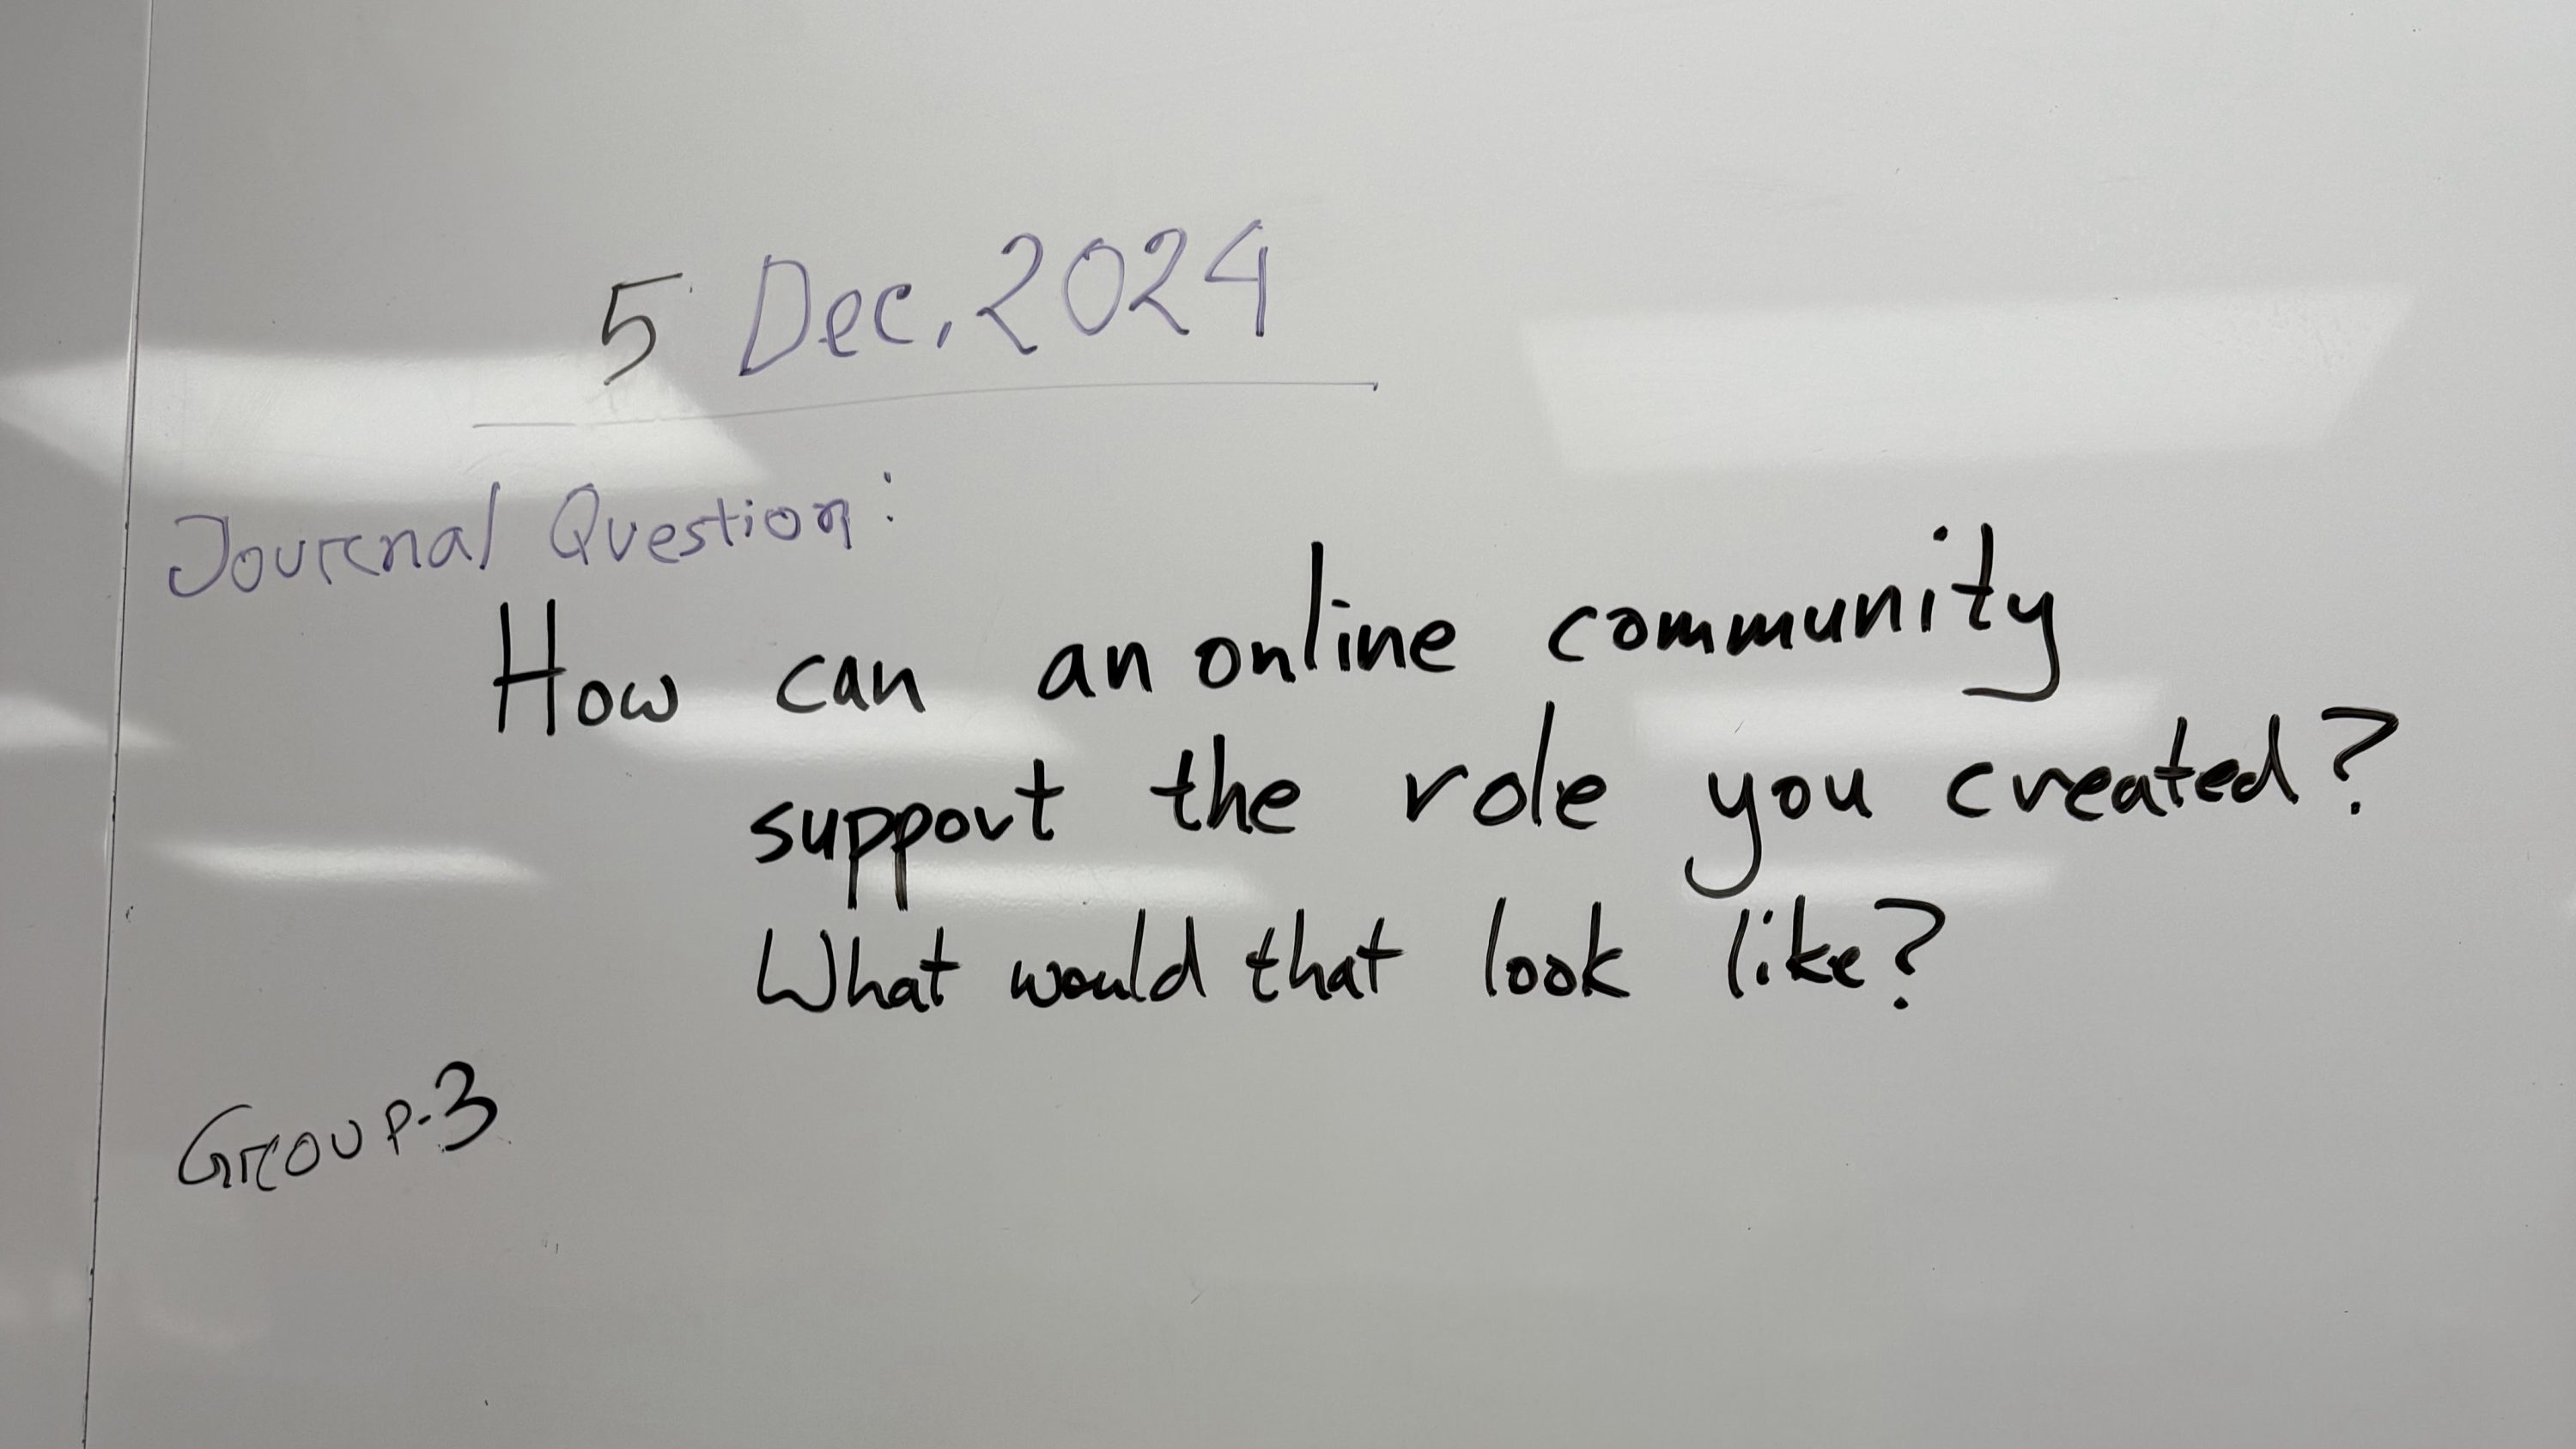 5 Dec, 2024
Journal Question:
How can an online community
support the role you created?
What would that look like?
Group-3